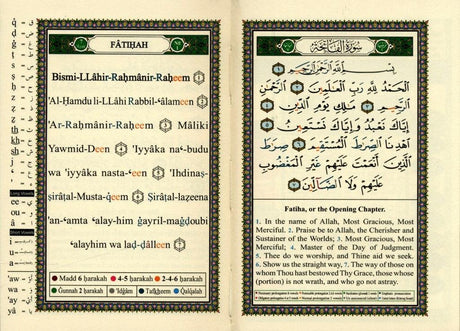 FÂTIḤAH
Bismi-LLâhir-Raḥmânir-Raḥeem
'Al-Ḥamdu li-LLâhi Rabbil-'âlameen
'Ar-Raḥmânir-Raḥeem Mâliki
Yawmid-Deen 'Iyyâka na-'budu
wa 'iyyâka nasta-'een 'Ihdinaṣ-
ṣirâṭal-Musta-q̇eem Ṣirâṭal-lazeena
'an-'amta 'alay-him ġayril-maġḍoubi
'alayhim wa laḍ-ḍâlleen
Madd 6 ḥarakah 4-5 ḥarakah 2-4-6 ḥarakah
Ġunnah 2 ḥarakah 'Idġâm Tafḵheem Q̇alq̇alah
Long Vowels
ee
ou
â
Short Vowels
i
u
a
'aw
'ay
سورة الفاتحة
بِسْمِ اللَّهِ الرَّحْمَٰنِ الرَّحِيمِ ١
الْحَمْدُ لِلَّهِ رَبِّ الْعَالَمِينَ ٢ الرَّحْمَٰنِ
الرَّحِيمِ ٣ مَالِكِ يَوْمِ الدِّينِ ٤
إِيَّاكَ نَعْبُدُ وَإِيَّاكَ نَسْتَعِينُ ٥
اهْدِنَا الصِّرَاطَ الْمُسْتَقِيمَ ٦ صِرَاطَ
الَّذِينَ أَنْعَمْتَ عَلَيْهِمْ غَيْرِ الْمَغْضُوبِ
عَلَيْهِمْ وَلَا الضَّالِّينَ ٧
Fatiha, or the Opening Chapter.
1. In the name of Allah, Most Gracious, Most
Merciful. 2. Praise be to Allah, the Cherisher and
Sustainer of the Worlds; 3. Most Gracious, Most
Merciful; 4. Master of the Day of Judgment.
5. Thee do we worship, and Thine aid we seek.
6. Show us the straight way, 7. The way of those on
whom Thou hast bestowed Thy Grace, those whose
(portion) is not wrath, and who go not astray.